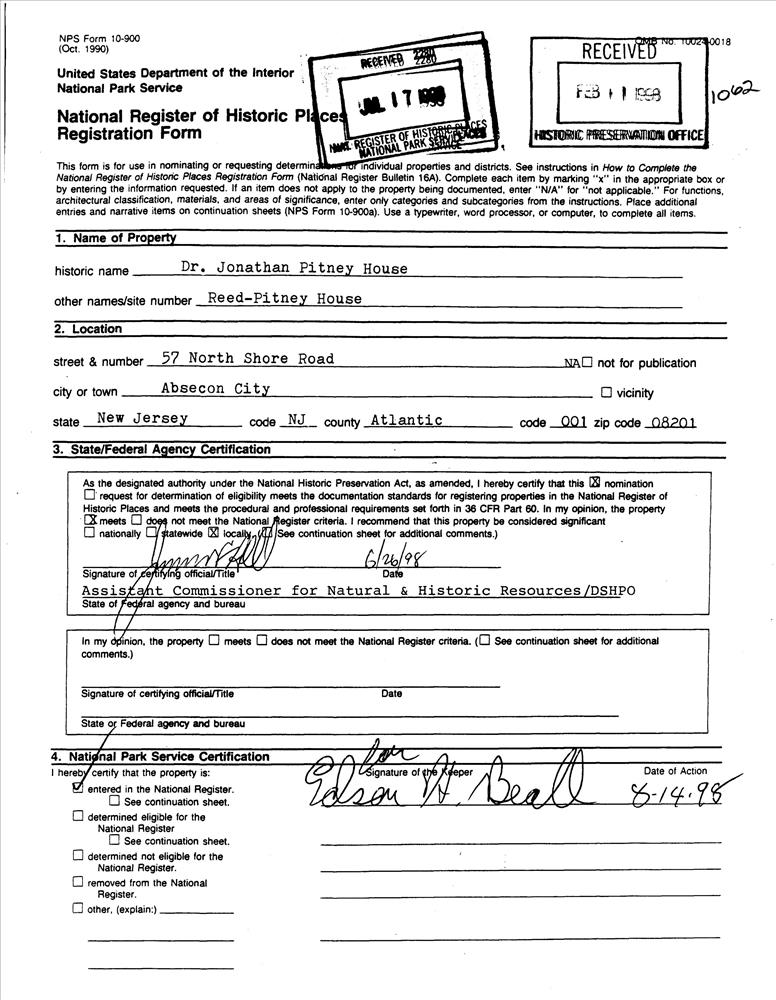 NPS Form 10-900
(Oct. 1990)
OMB No. 10024-0018
United States Department of the Interior
National Park Service
National Register of Historic Places
Registration Form
RECEIVED 2280
JUL 17 1998
NAT. REGISTER OF HISTORIC PLACES
NATIONAL PARK SERVICE
RECEIVED
FEB 11 1998
HISTORIC PRESERVATION OFFICE
1062
This form is for use in nominating or requesting determinations for individual properties and districts. See instructions in How to Complete the
National Register of Historic Places Registration Form (National Register Bulletin 16A). Complete each item by marking "x" in the appropriate box or
by entering the information requested. If an item does not apply to the property being documented, enter "N/A" for "not applicable." For functions,
architectural classification, materials, and areas of significance, enter only categories and subcategories from the instructions. Place additional
entries and narrative items on continuation sheets (NPS Form 10-900a). Use a typewriter, word processor, or computer, to complete all items.
1. Name of Property
historic name Dr. Jonathan Pitney House
other names/site number Reed-Pitney House
2. Location
street & number 57 North Shore Road NA☐ not for publication
city or town Absecon City ☐ vicinity
state New Jersey code NJ county Atlantic code 001 zip code 08201
3. State/Federal Agency Certification
As the designated authority under the National Historic Preservation Act, as amended, I hereby certify that this ☒ nomination
☐ request for determination of eligibility meets the documentation standards for registering properties in the National Register of
Historic Places and meets the procedural and professional requirements set forth in 36 CFR Part 60. In my opinion, the property
☒ meets ☐ does not meet the National Register criteria. I recommend that this property be considered significant
☐ nationally ☐ statewide ☒ locally. (☐ See continuation sheet for additional comments.)
6/26/98
Signature of certifying official/Title Date
Assistant Commissioner for Natural & Historic Resources/DSHPO
State of Federal agency and bureau
In my opinion, the property ☐ meets ☐ does not meet the National Register criteria. (☐ See continuation sheet for additional
comments.)
Signature of certifying official/Title Date
State or Federal agency and bureau
4. National Park Service Certification
I hereby certify that the property is:
☑ entered in the National Register.
☐ See continuation sheet.
☐ determined eligible for the
National Register
☐ See continuation sheet.
☐ determined not eligible for the
National Register.
☐ removed from the National
Register.
☐ other, (explain:)
for
Signature of the Keeper Date of Action
Edson H. Beall 8-14-98